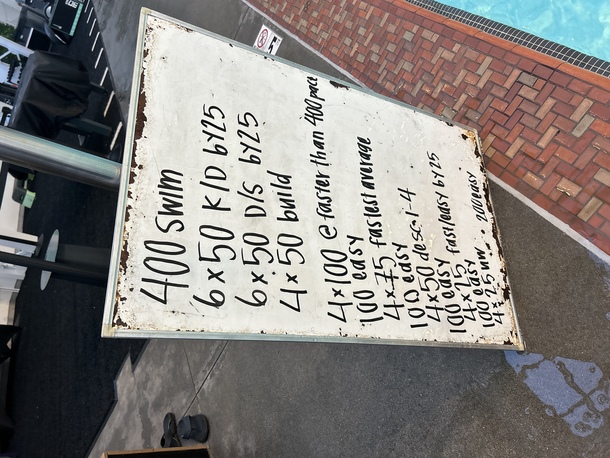 400 swim
6x50 K/D by25
6x50 D/S by25
4x50 build
4x100 @ faster than 400 pace
100 easy
4x75 fastest average
100 easy
4x50 desc. 1-4
100 easy
4x25 fast/easy by 25
100 easy
4x25 uw • 200 easy